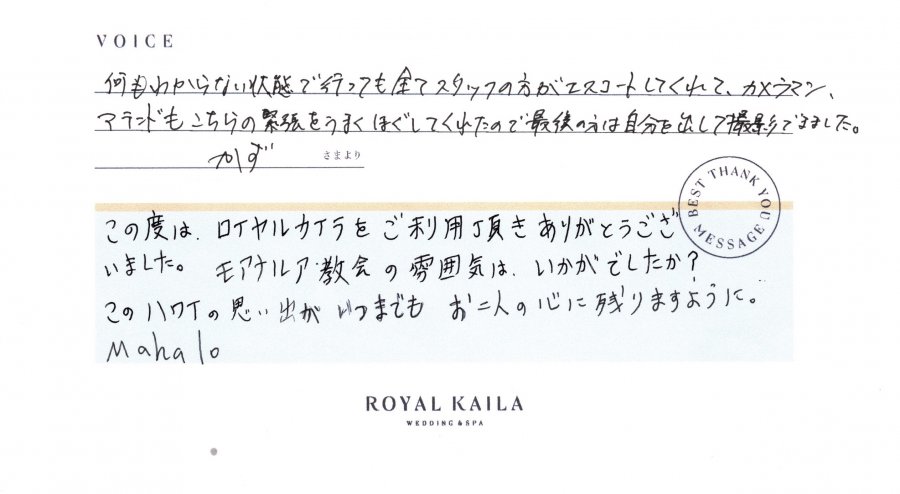 VOICE
何もわからない状態で行っても全てスタッフの方がエスコートしてくれて、カメラマン、
アテンドもこちらの緊張をうまくほぐしてくれたので最後の方は自分を出して撮影できました。
かず さまより
BEST THANK YOU MESSAGE
この度は、ロイヤルカイラをご利用頂きありがとうござ
いました。 モアナルア教会の雰囲気は、いかがでしたか?
このハワイの思い出がいつまでも お二人の心に残りますように。
Mahalo
ROYAL KAILA
WEDDING & SPA